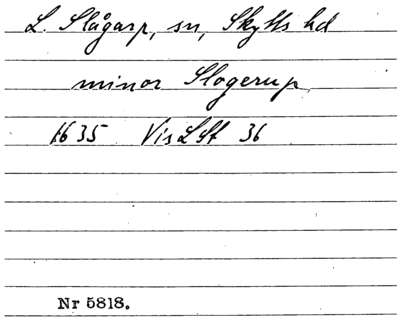 L. Slågarp, sn, Skytts hd
minor Slogerup
1635 VisLSt 36
Nr 5818.